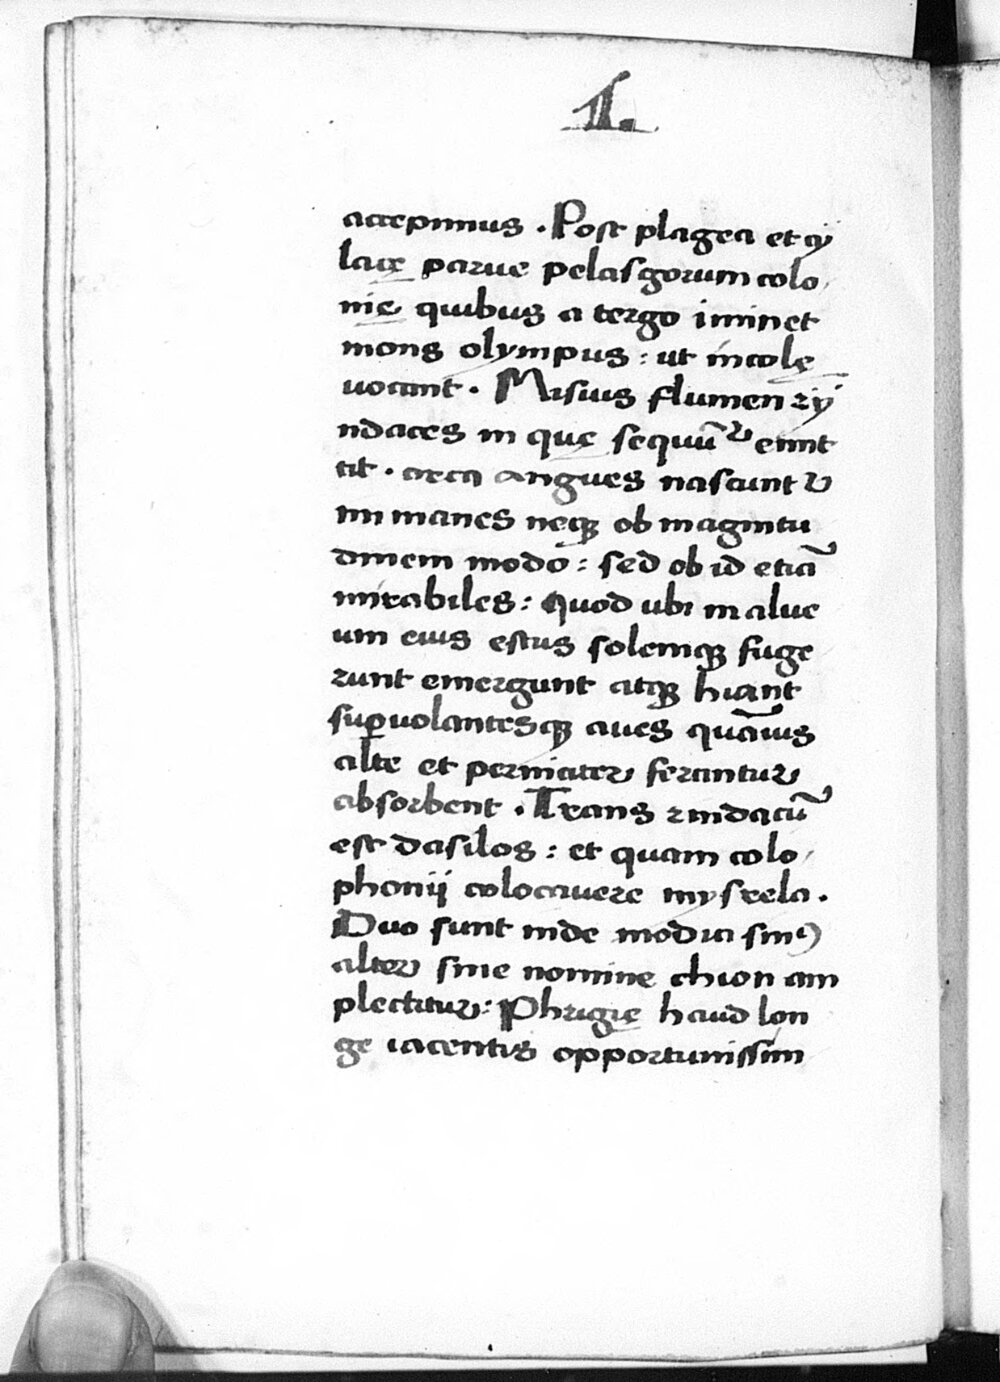 1.
accepimus . Post plagea et cy
lace parue pelasgorum colo
nię quibus a tergo iminet
mons olympus : ut incolę
uocant . Misius flumen ry
ndaces in quę sequũr emit
tit . circa angues nascunt᷑
immanes neqꝫ ob magnitu
dinem modo : sed ob id etiã
mirabiles : quod ubi in alue
um eius estus solemqꝫ fuge
runt emergunt atqꝫ hiant
suꝑuolantesqꝫ aues quãuis
alte et perniciter ferantur
absorbent . Trans rindacũ
est dasilos : et quam colo
phonij colocauere myrela .
Duo sunt inde modici sinꝰ
alter sine nomine chion am
plectitur : Phrigię haud lon
ge iacentis opportunissim